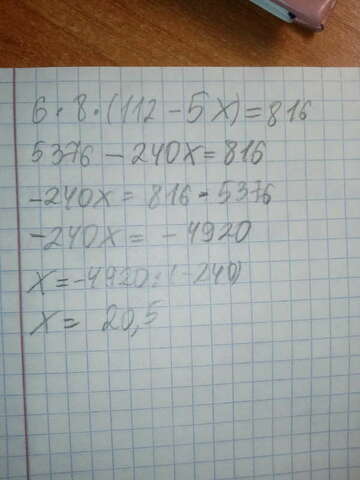 6 · 8 · (112 - 5x) = 816
5376 - 240x = 816
-240x = 816 - 5376
-240x = - 4920
x = -4920 : (-240)
x = 20,5